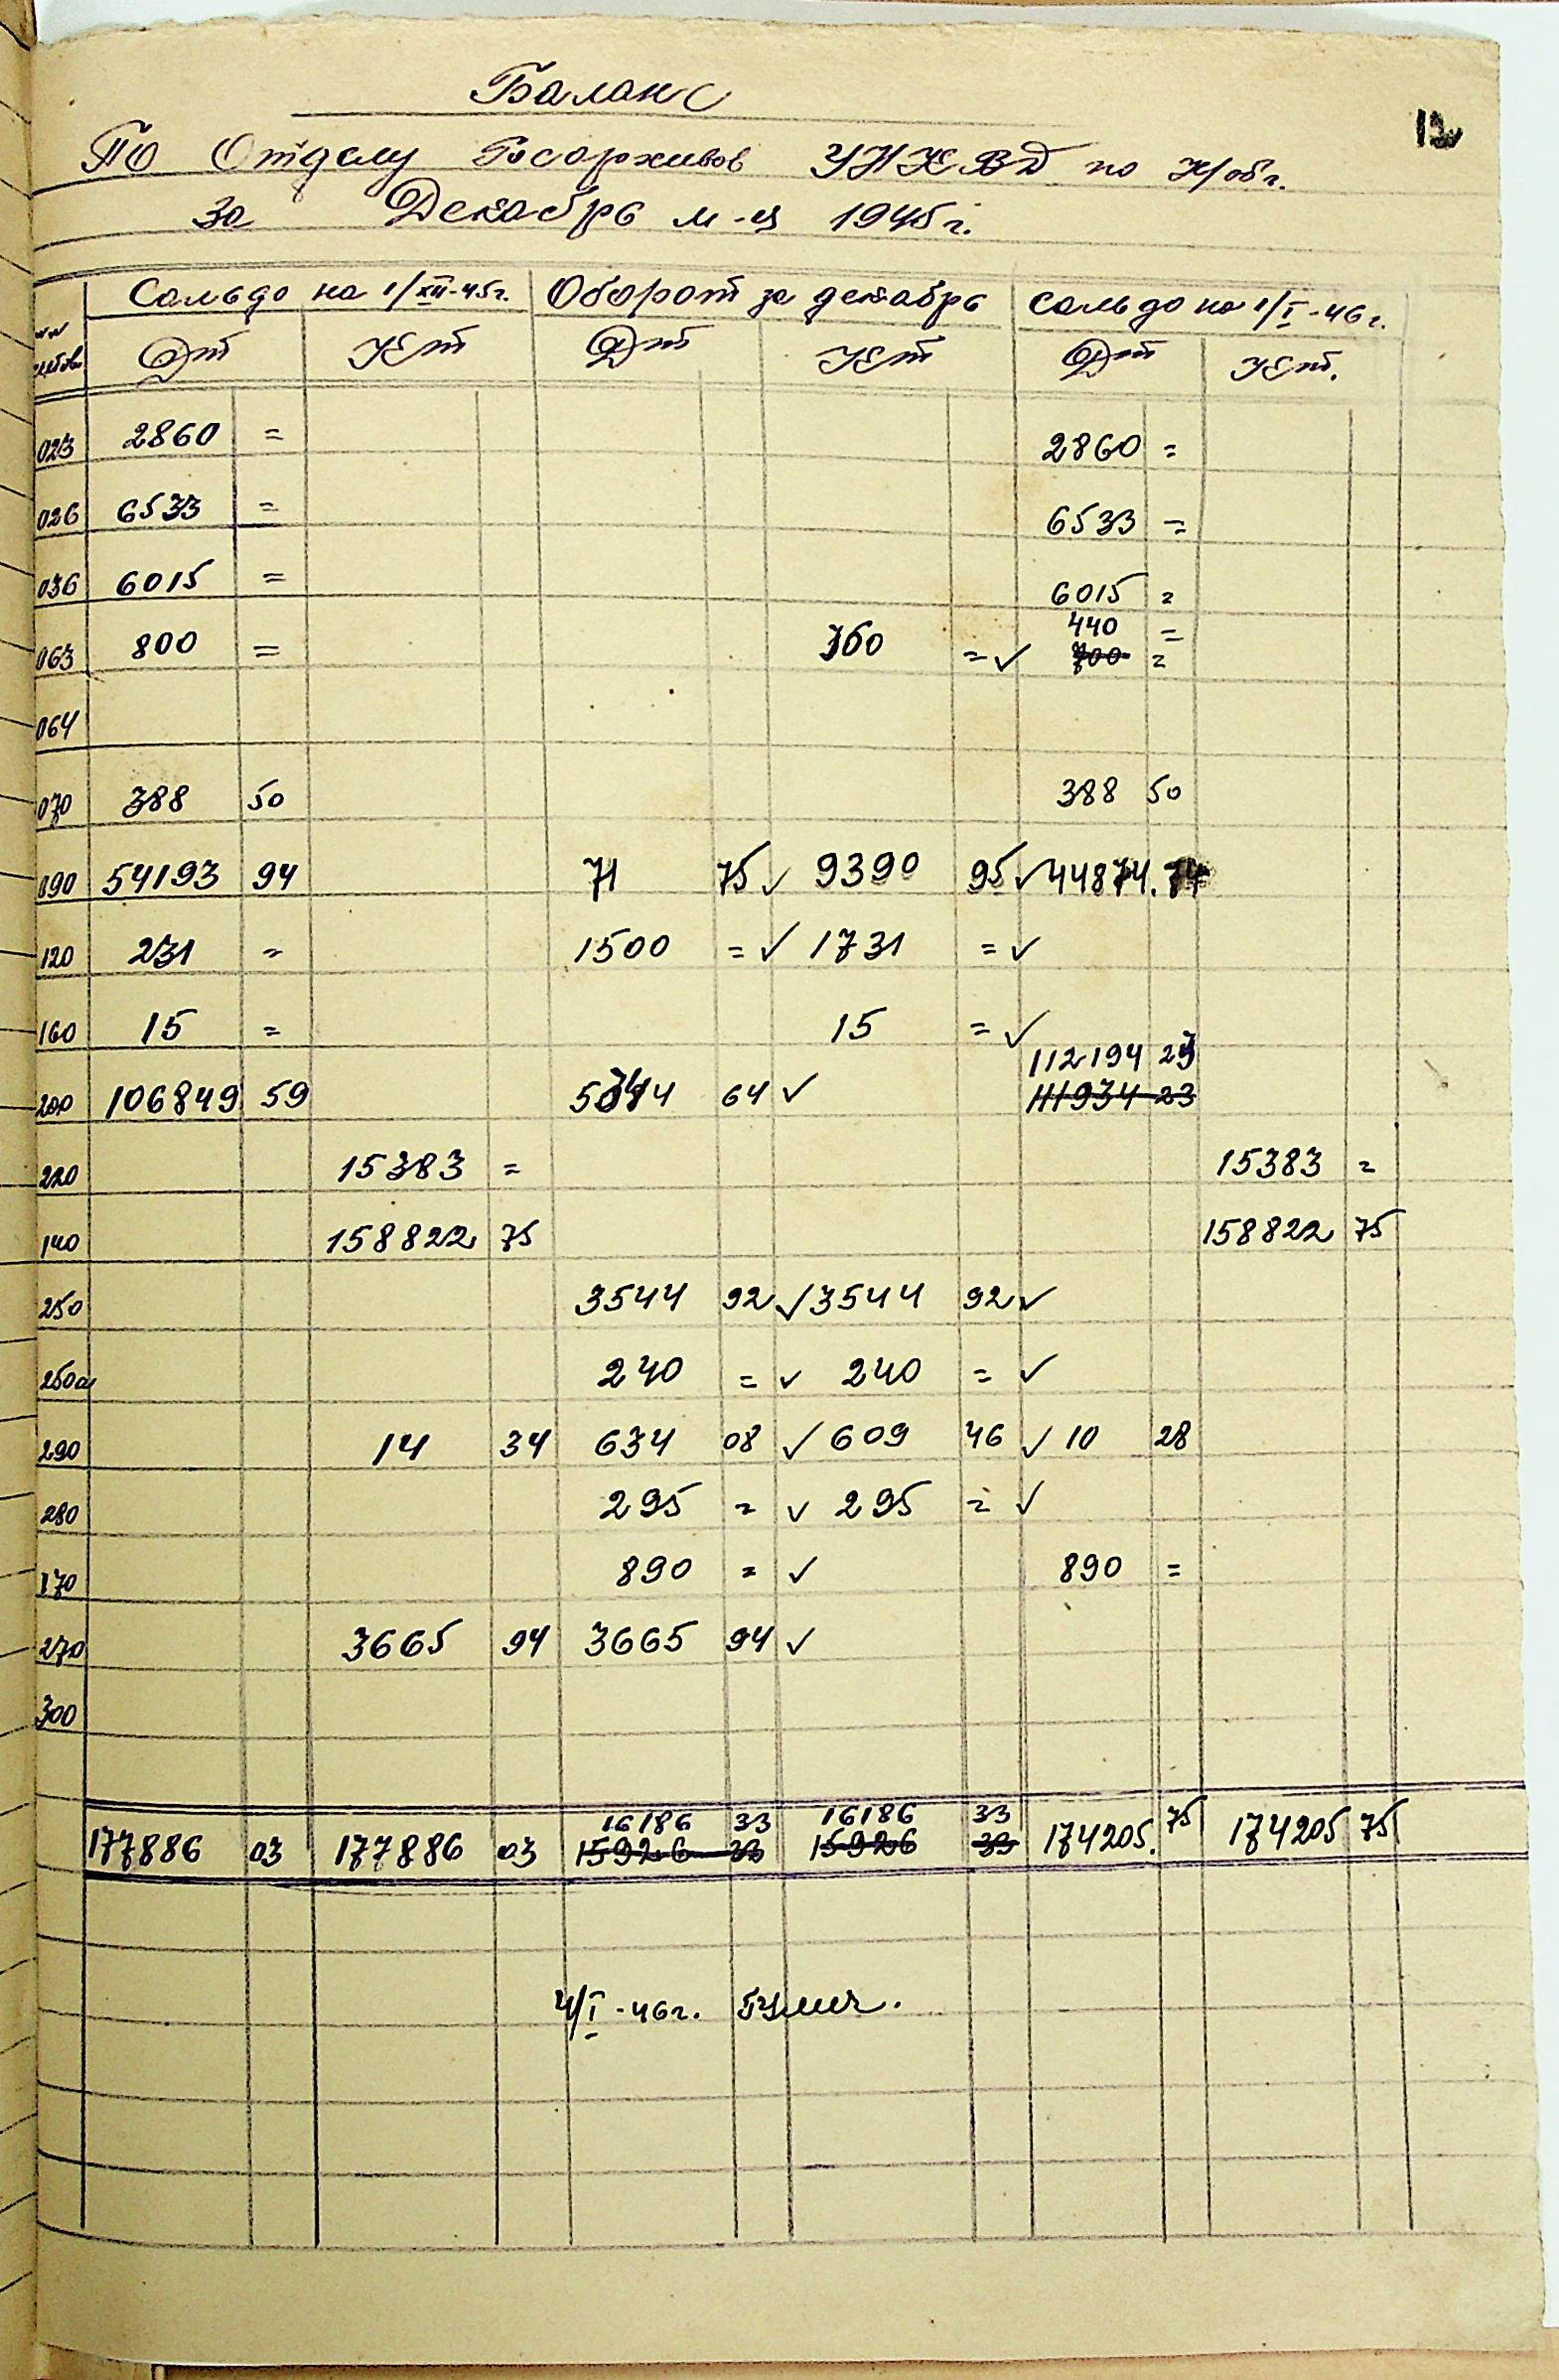 12
Баланс
По Отделу Госархивов УНКВД по К/обл.
за Декабрь м-ц 1945 г.
Сальдо на 1/XII-45г. Оборот за декабрь Сальдо на 1/I-46г.
Дт Кт Дт Кт Дт Кт.
023 2860 = 2860 =
026 6533 = 6533 =
036 6015 = 6015 =
440 =
063 800 = 360 = ✓ 700 =
064
070 388 50 388 50
090 54193 94 71 75 ✓ 9390 95 ✓ 44874.74
120 231 = 1500 = ✓ 1731 = ✓
160 15 = 15 = ✓
112194 23
200 106849 59 5344 64 ✓ 111934 23
220 15383 = 15383 =
140 158822 75 158822 75
250 3544 92 ✓ 3544 92 ✓
250а 240 = ✓ 240 = ✓
290 14 34 634 08 ✓ 609 46 ✓ 10 28
280 295 = ✓ 295 = ✓
170 890 = ✓ 890 =
270 3665 94 3665 94 ✓
300
16186 33 16186 33
177886 03 177886 03 15926 33 15926 33 174205.75 174205 75
4/I-46г.